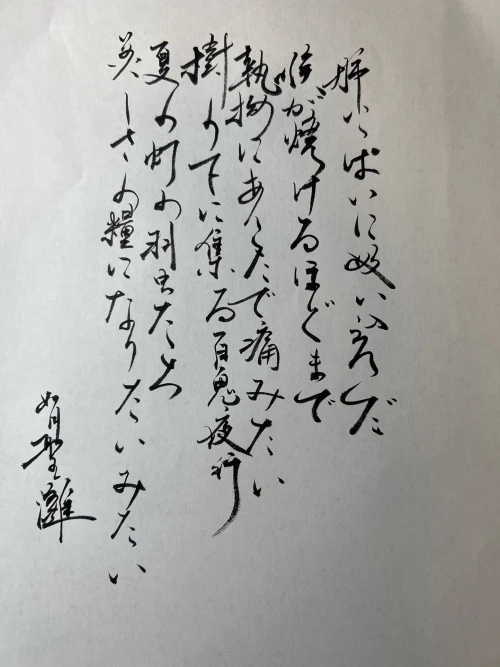 肺いっぱいに吸い込んだ
喉が焼けるほどまで
執拗にあなたで痛みたい
樹の下に集る百鬼夜行
夏の灯の羽虫たち
美しさの糧になりたいみたい
如月聖灘